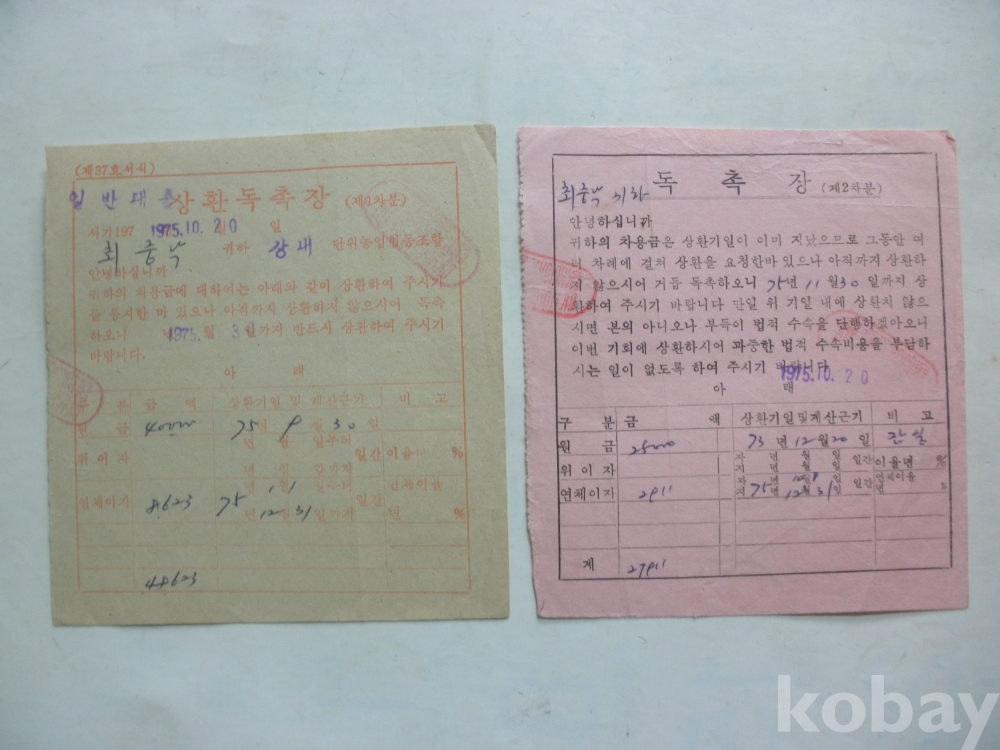 (제37호서식)
일반대출 상환독촉장 (제1차분)
시가197 1975.10.20 일
최중낙 귀하 강내 단위농업협동조합
안녕하십니까
귀하의 차용금에 대하여는 아래와 같이 상환하여 주시기
를 통지한 바 있으나 아직까지 상환하지 않으시어 독촉
하오니 1975. 월 3 일까지 반드시 상환하여 주시기
바랍니다.
아 래
구 분 금 액 상환기일 및 계산근기 비 고
원 금 40000 75년 9월 30일
위 이 자 년 월 일부터 년 월 일까지 일간 이율 %
연체이자 8.623 75년 1. 1 일부터 년 12월 31일까지 일간 연체이율 년 %
48623
독 촉 장 (제2차분)
최중낙 귀하
안녕하십니까
귀하의 차용금은 상환기일이 이미 지났으므로 그동안 여
러 차례에 걸쳐 상환을 요청한바 있으나 아직까지 상환하
지 않으시어 거듭 독촉하오니 75년 11월 30일까지 상
환하여 주시기 바랍니다 만일 위 기일 내에 상환치 않으
시면 본의 아니오나 부득이 법적 수속을 단행하겠아오니
이번 기회에 상환하시어 과중한 법적 수속비용을 부담하
시는 일이 없도록 하여 주시기 바랍니다
1975.10.20
아 래
구 분 금 액 상환기일및계산근기 비 고
원 금 25000 73년 12월 20일
위 이 자 자 년 월 일 지 년 월 일 일간 이율년 %
연체이자 2911 자 년 월 일 지 75년 12월 31일 일간 연체이율 년 %
계 27911
kobay